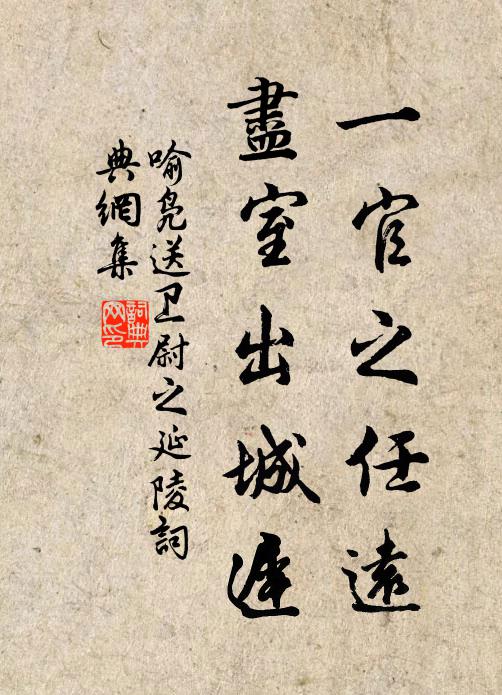 一官之任遠
盡室出城遲
喻凫送卫尉之延陵詞
典網集
詞典
网印